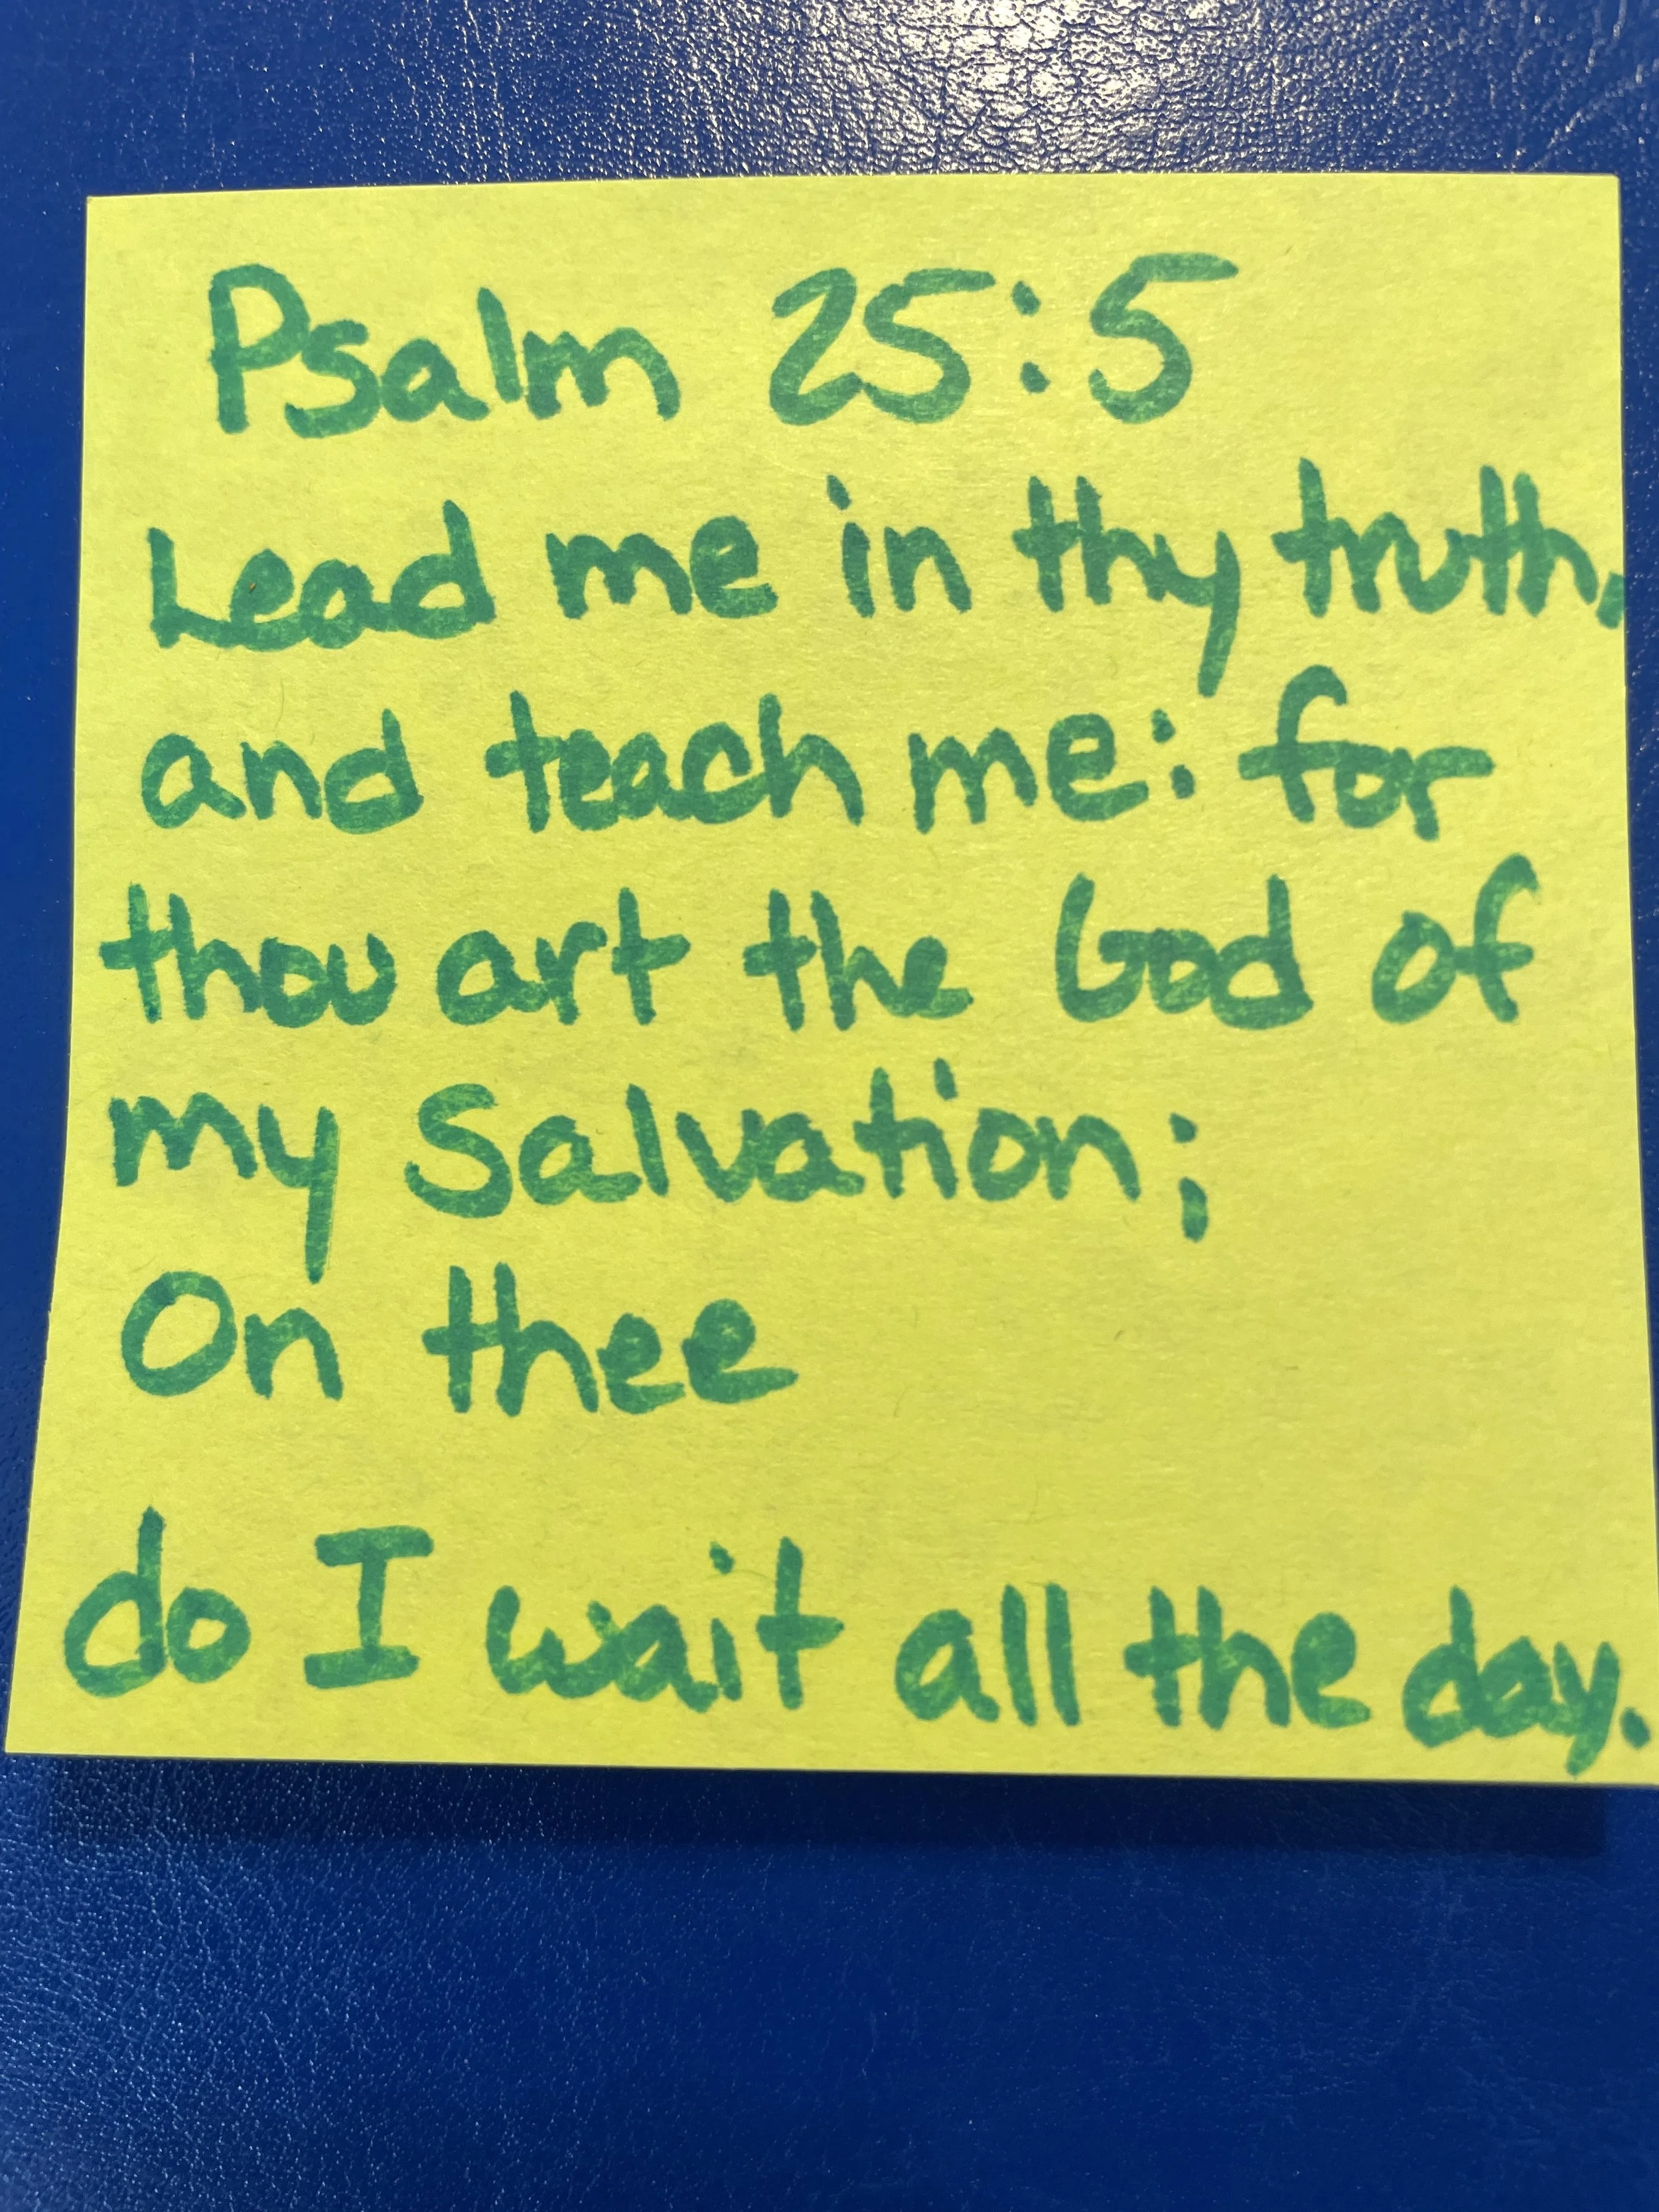 Psalm 25:5
Lead me in thy truth,
and teach me: for
thou art the God of
my Salvation;
On thee
do I wait all the day.